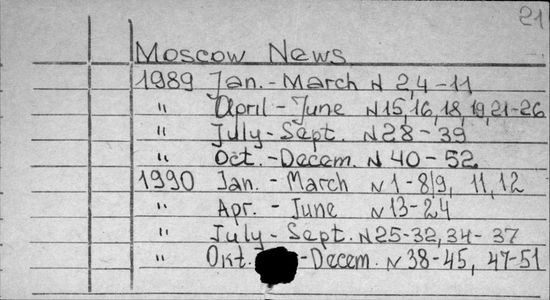 21
Moscow News
1989 Jan.-March N 2,4-11
" April-June N15,16,18,19,21-26
" July-Sept. N28-39
" Oct.-Decem. N 40-52
1990 Jan.-March N1-8,9, 11,12
" Apr.-June N13-24
" July-Sept. N25-32,34-37
" Okt.-Decem. N38-45, 47-51